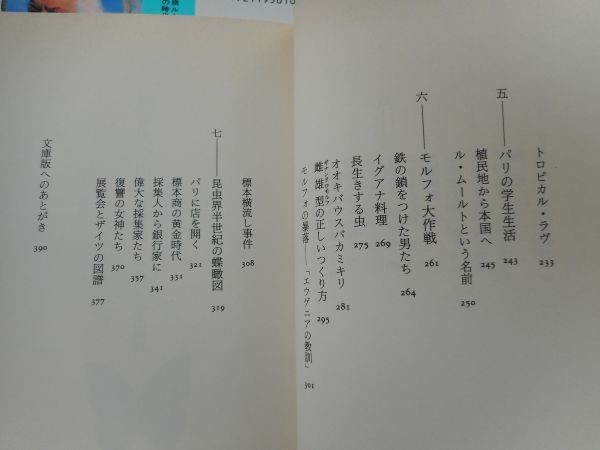 トロピカル・ラヴ 233
五――パリの学生生活 243
植民地から本国へ 245
ル・ムールトという名前 250
六――モルフォ大作戦 261
鉄の鎖をつけた男たち 264
イグアナ料理 269
長生きする虫 275
オオキバウスバカミキリ 281
雌雄型の正しいつくり方 295
モルフォの暴落――「エウゲニアの教訓」 301
標本横流し事件 308
七――昆虫界半世紀の蝶瞰図 319
パリに店を開く 321
標本商の黄金時代 331
採集人から銀行家に 341
偉大な採集家たち 357
復讐の女神たち 370
展覧会とザイツの図譜 377
文庫版へのあとがき 390